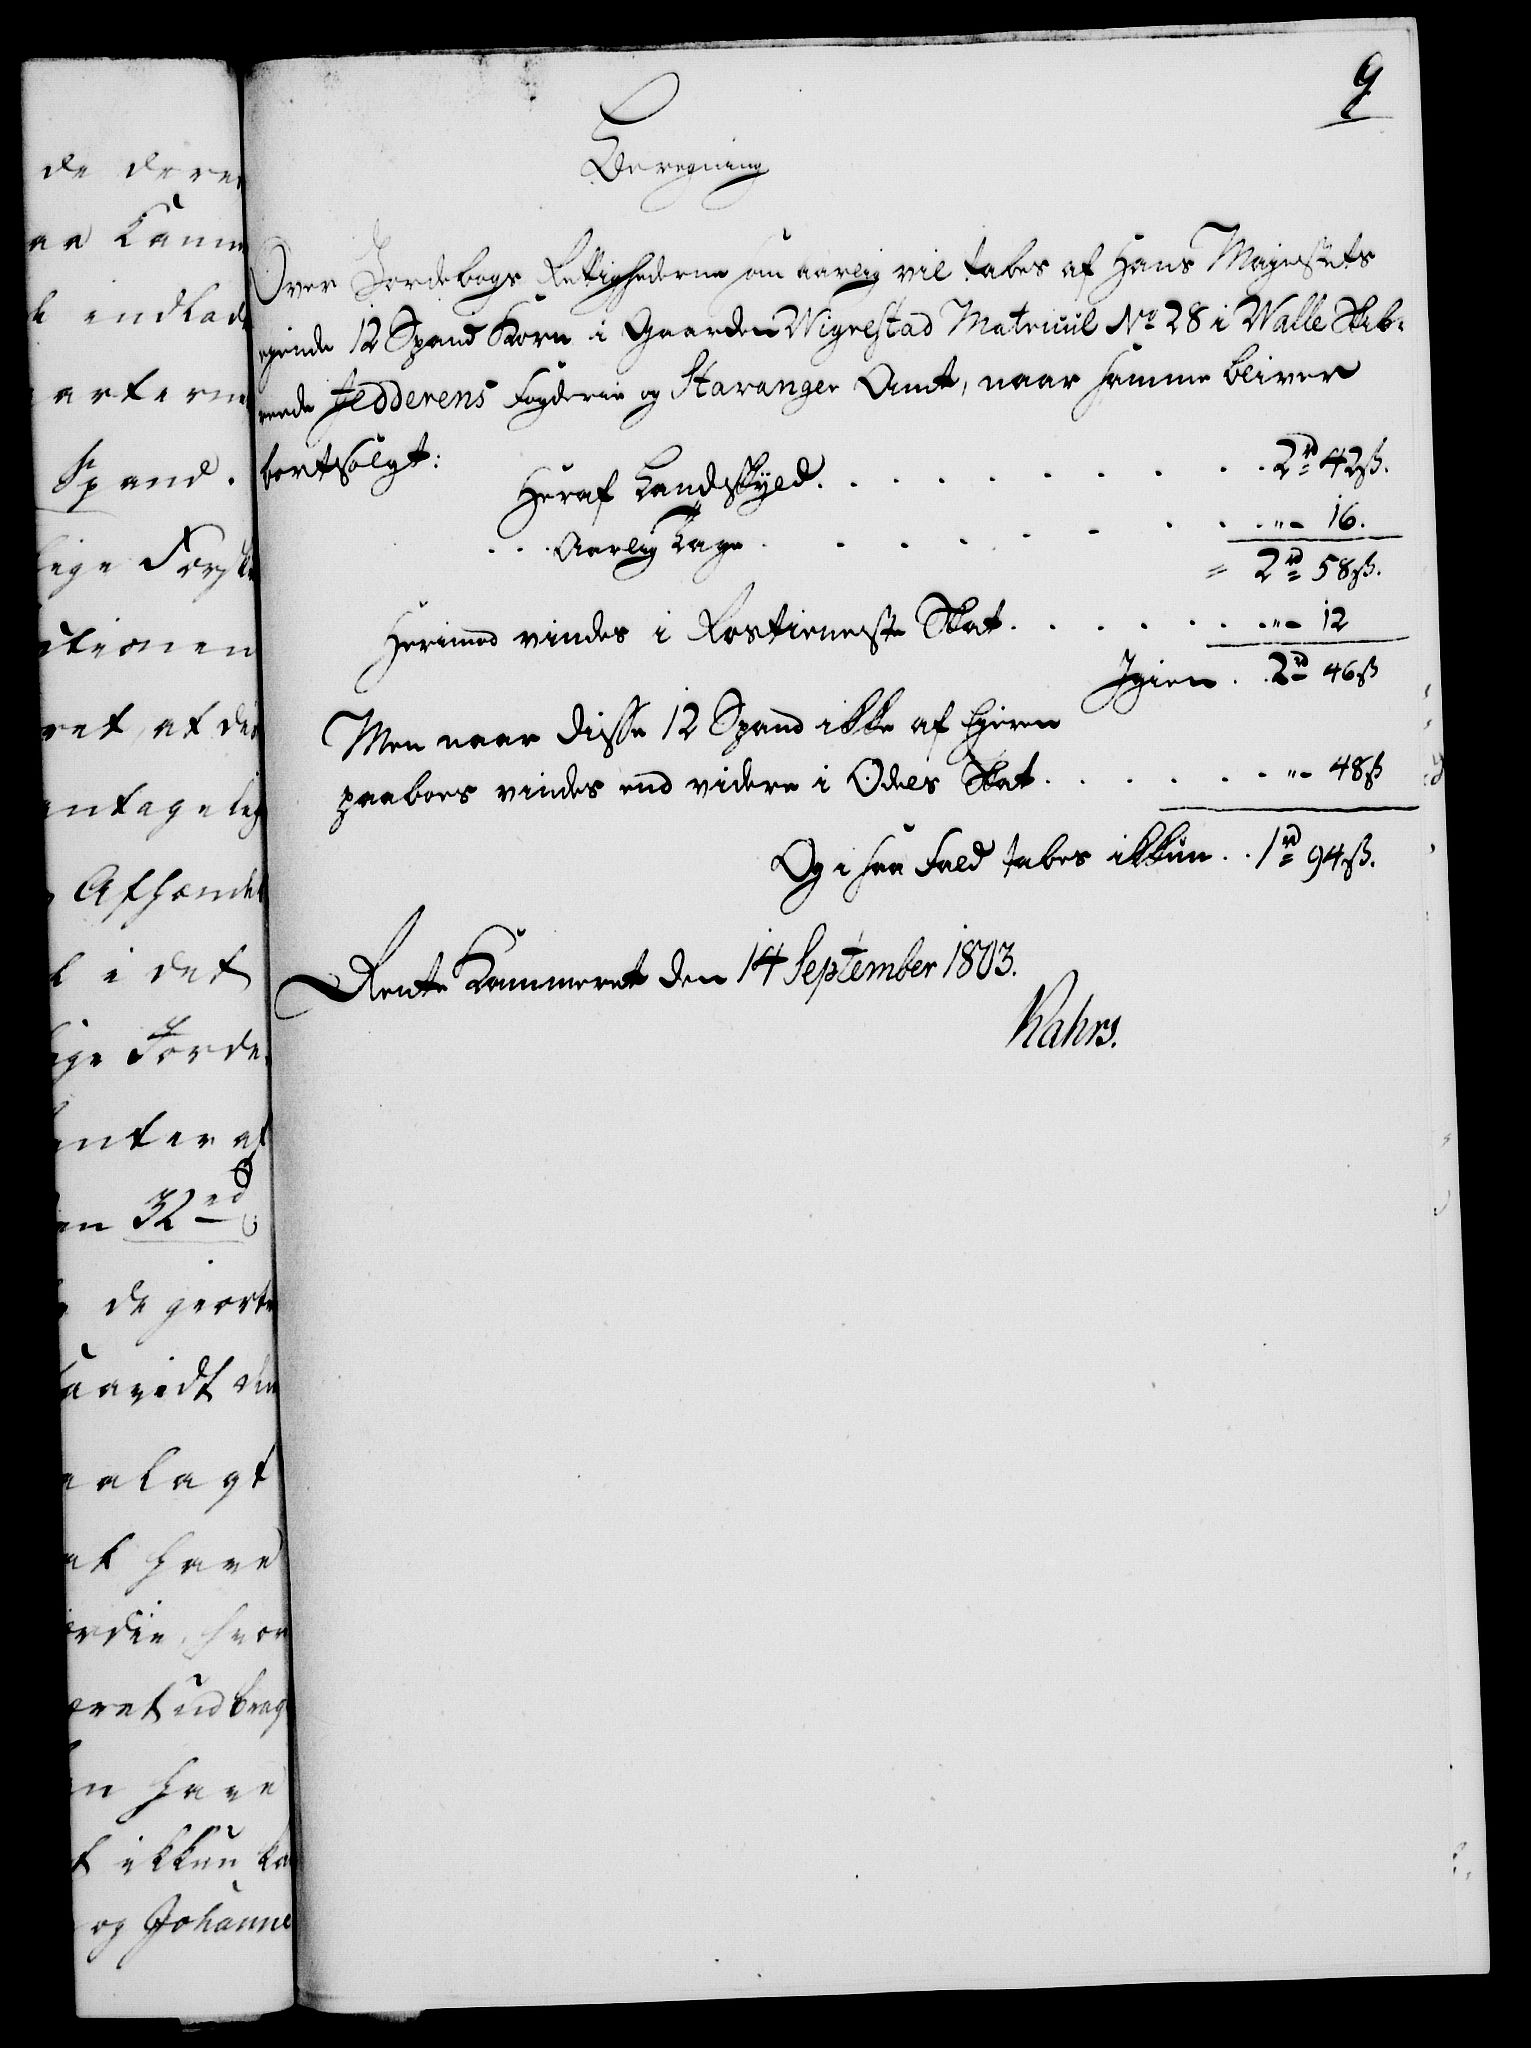 9
Beregning
Over Jordebogs Rettighederne som aarlig vil tabes af Hans Majestets
egende 12 Spand Korn i Gaarden Wigrestad Matricul No 28 i Walle Skib-
rende Jedderens Fogderie og Stavanger Amt, naar samme bliver
bortsolgt:
Heraf Landskyld . . . . . . . . . 2 rd 42 ß.
. . . Aarlig Tage . . . . . . . . . „ - 16.
= 2 rd 58 ß.
Herimod vindes i Rostieneste Skat . . . . . . . „ - 12
Igien . . 2 rd 46 ß
Men naar disse 12 Spand ikke af Eyeren
paaboes vindes end videre i Odels Skat . . . . . . . „ - 48 ß
Og i saa Fald tabes ikkun . . 1 rd 94 ß.
Rente Kammeret den 14 September 1803.
Rahrs.
de dere
aa Kamm
indlad
arterne
Spand.
lige Forsk
ctionen
ret, at de
antagelig
Afhænde
l i det
ige Jorde
enter af
en 32 rd
de giorte
saavidt
aalagt
at have
erdie, hvor
æret udbrag
en have
t ikkun ka
og Johanne